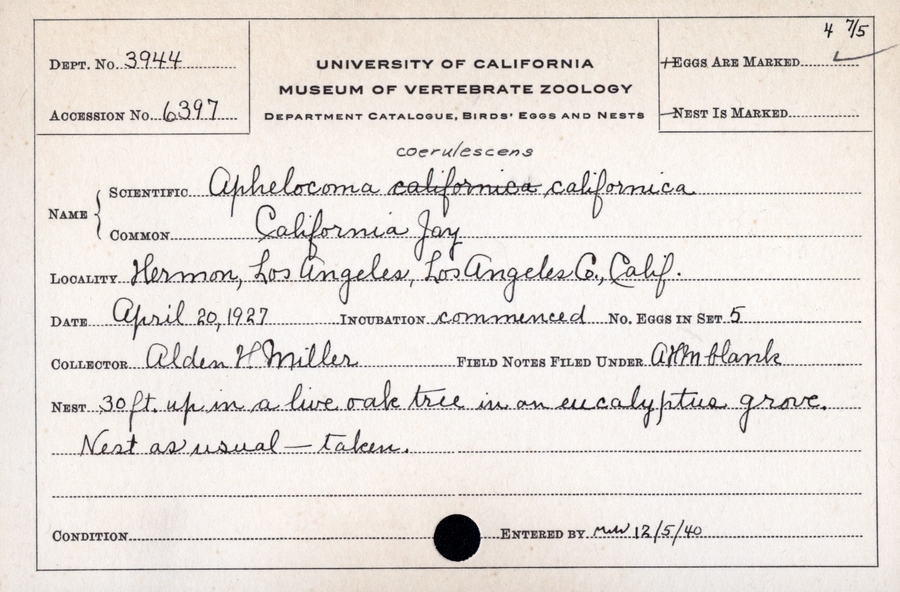 4 7/5
DEPT. NO. 3944
UNIVERSITY OF CALIFORNIA
+EGGS ARE MARKED
MUSEUM OF VERTEBRATE ZOOLOGY
ACCESSION NO. 6397
DEPARTMENT CATALOGUE, BIRDS' EGGS AND NESTS
NEST IS MARKED
coerulescens
NAME { SCIENTIFIC Aphelocoma californica californica
COMMON California Jay
LOCALITY Hermon, Los Angeles, Los Angeles Co., Calif.
DATE April 20, 1927 INCUBATION commenced NO. EGGS IN SET 5
COLLECTOR Alden H Miller FIELD NOTES FILED UNDER AHM blank
NEST 30 ft. up in a live oak tree in an eucalyptus grove.
Nest as usual — taken.
CONDITION ENTERED BY 12/5/40